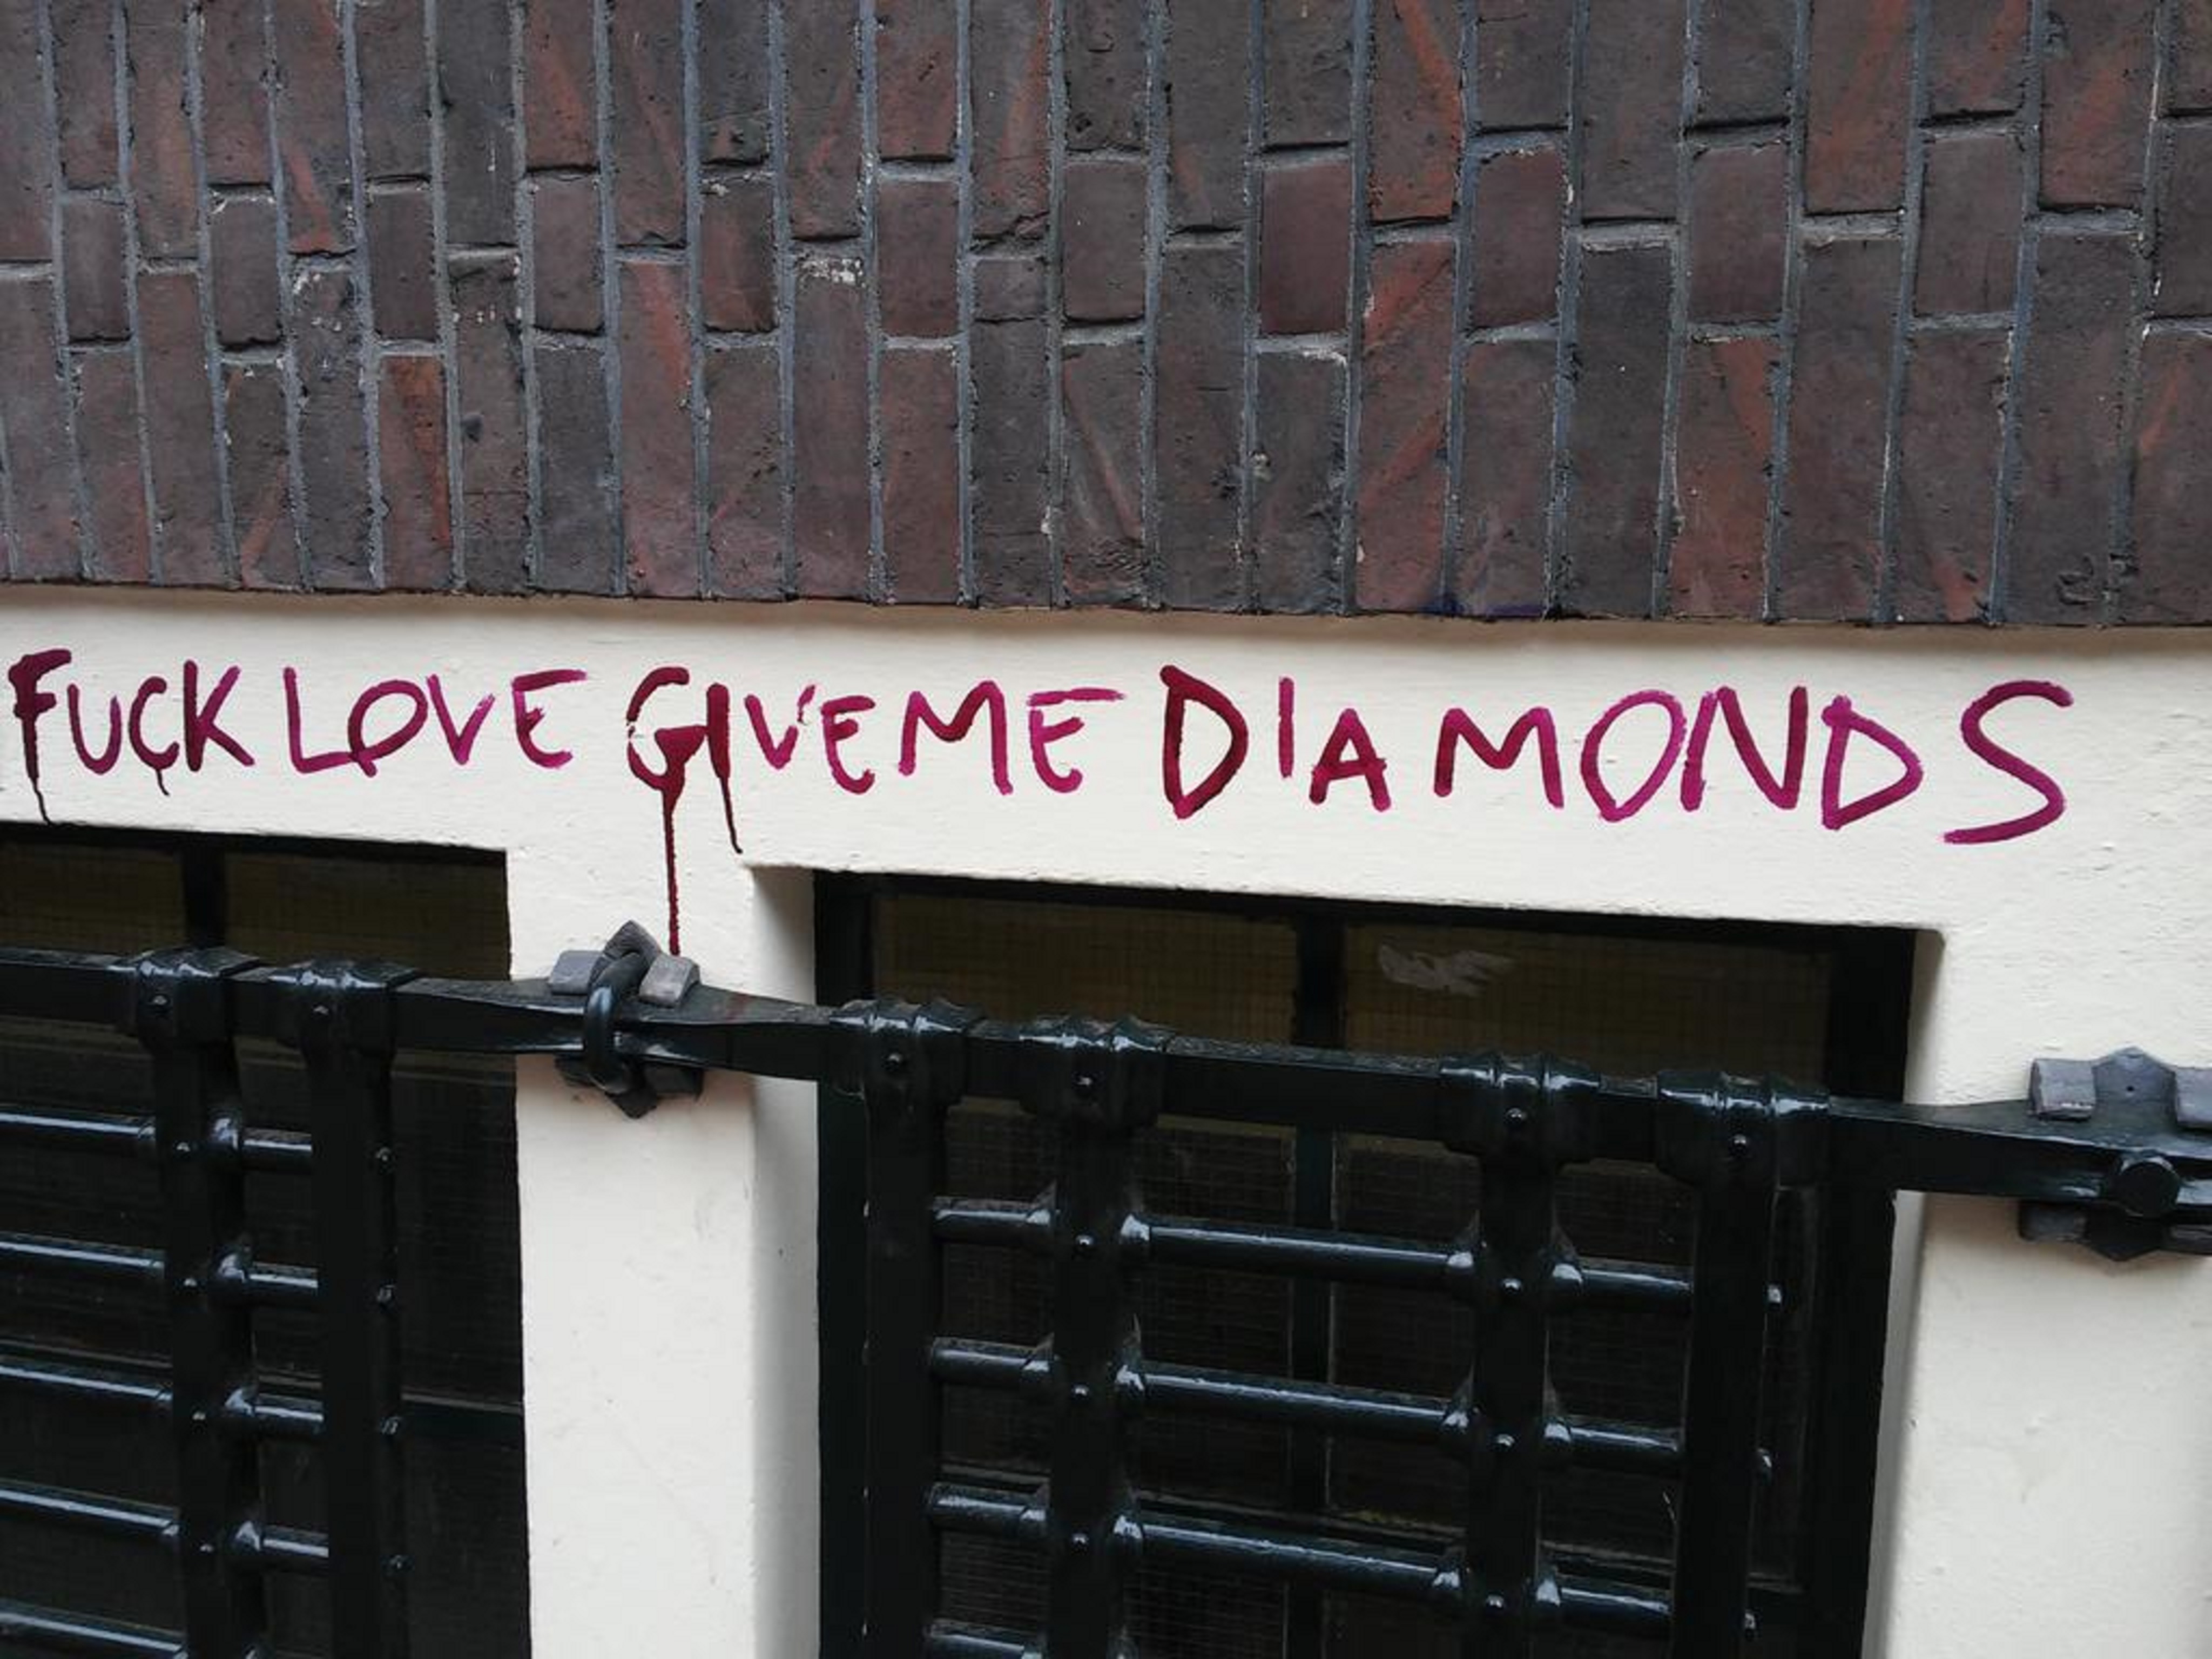 FUCK LOVE GIVE ME DIAMONDS